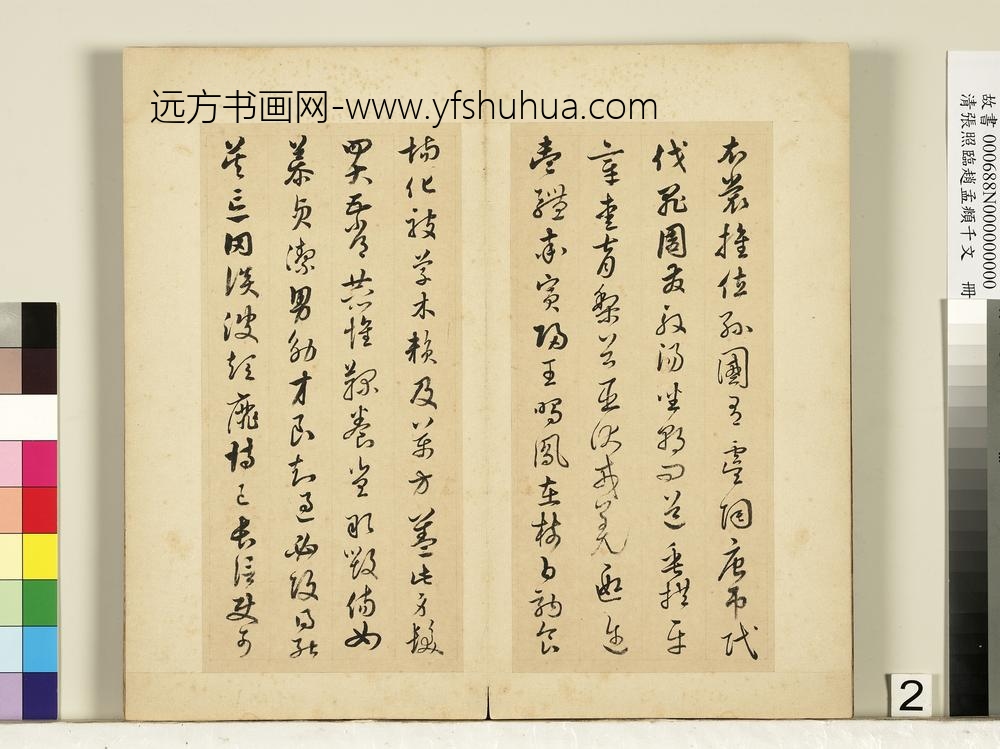 远方书画网-www.yfshuhua.com
衣裳推位孫國有虞陶唐弔民
伐罪周發殷湯坐朝問道垂拱平
章愛育黎首臣伏戎羌遐迩
壹體率賓歸王鳴鳳在樹白駒食
場化被草木賴及萬方蓋此身髮
四大五常恭惟鞠養豈敢毀傷女
慕貞潔男效才良知過必改得能
莫忘罔談彼短靡恃己長信使可
故書000688N000000000
清張照臨趙孟頫千文 冊
2